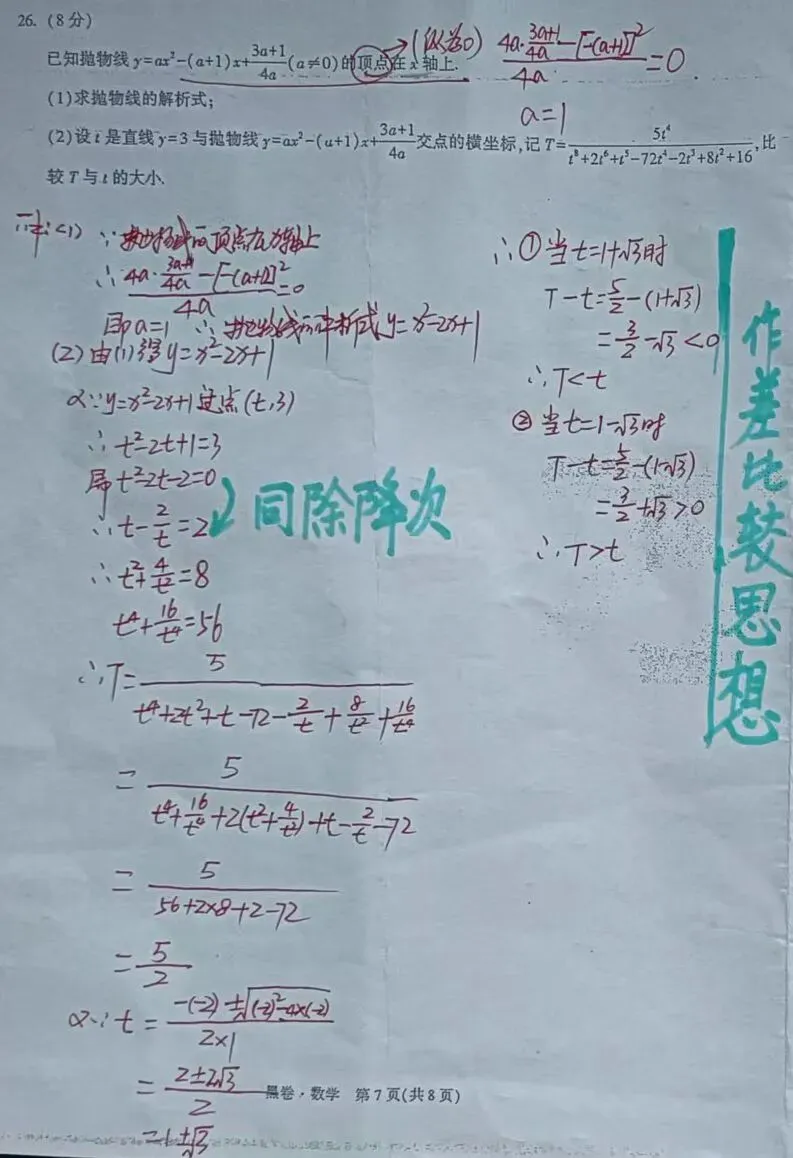 26. (8分)
已知抛物线 y=ax²-(a+1)x+\frac{3a+1}{4a}(a≠0)的顶点在x轴上.
(纵为0)
\frac{4a·\frac{3a+1}{4a}-[-(a+1)]²}{4a}=0
(1)求抛物线的解析式;
a=1
(2)设t是直线y=3与抛物线y=ax²-(a+1)x+\frac{3a+1}{4a}交点的横坐标,记T=\frac{5t⁴}{t⁸+2t⁶+t⁵-72t⁴-2t³+8t²+16},比
较T与t的大小.
解:(1) ∵抛物线的顶点在x轴上
∴\frac{4a·\frac{3a+1}{4a}-[-(a+1)]²}{4a}=0
即a=1 ∴抛物线的解析式y=x²-2x+1
(2)由(1)得y=x²-2x+1
又∵y=x²-2x+1过点(t,3)
∴t²-2t+1=3
即t²-2t-2=0
∴t-\frac{2}{t}=2
同除降次
∴t²+\frac{4}{t²}=8
t⁴+\frac{16}{t⁴}=56
∴T=\frac{5}{t⁴+2t²+t-72-\frac{2}{t}+\frac{8}{t²}+\frac{16}{t⁴}}
=\frac{5}{t⁴+\frac{16}{t⁴}+2(t²+\frac{4}{t²})+t-\frac{2}{t}-72}
=\frac{5}{56+2×8+2-72}
=\frac{5}{2}
又∵t=\frac{-(-2)±\sqrt{(-2)²-4×(-2)}}{2×1}
=\frac{2±2√3}{2}
=1±√3
∴①当t=1+√3时
T-t=\frac{5}{2}-(1+√3)
=\frac{3}{2}-√3<0
∴T<t
②当t=1-√3时
T-t=\frac{5}{2}-(1-√3)
=\frac{3}{2}+√3>0
∴T>t
作差比较思想
黑卷·数学 第7页(共8页)